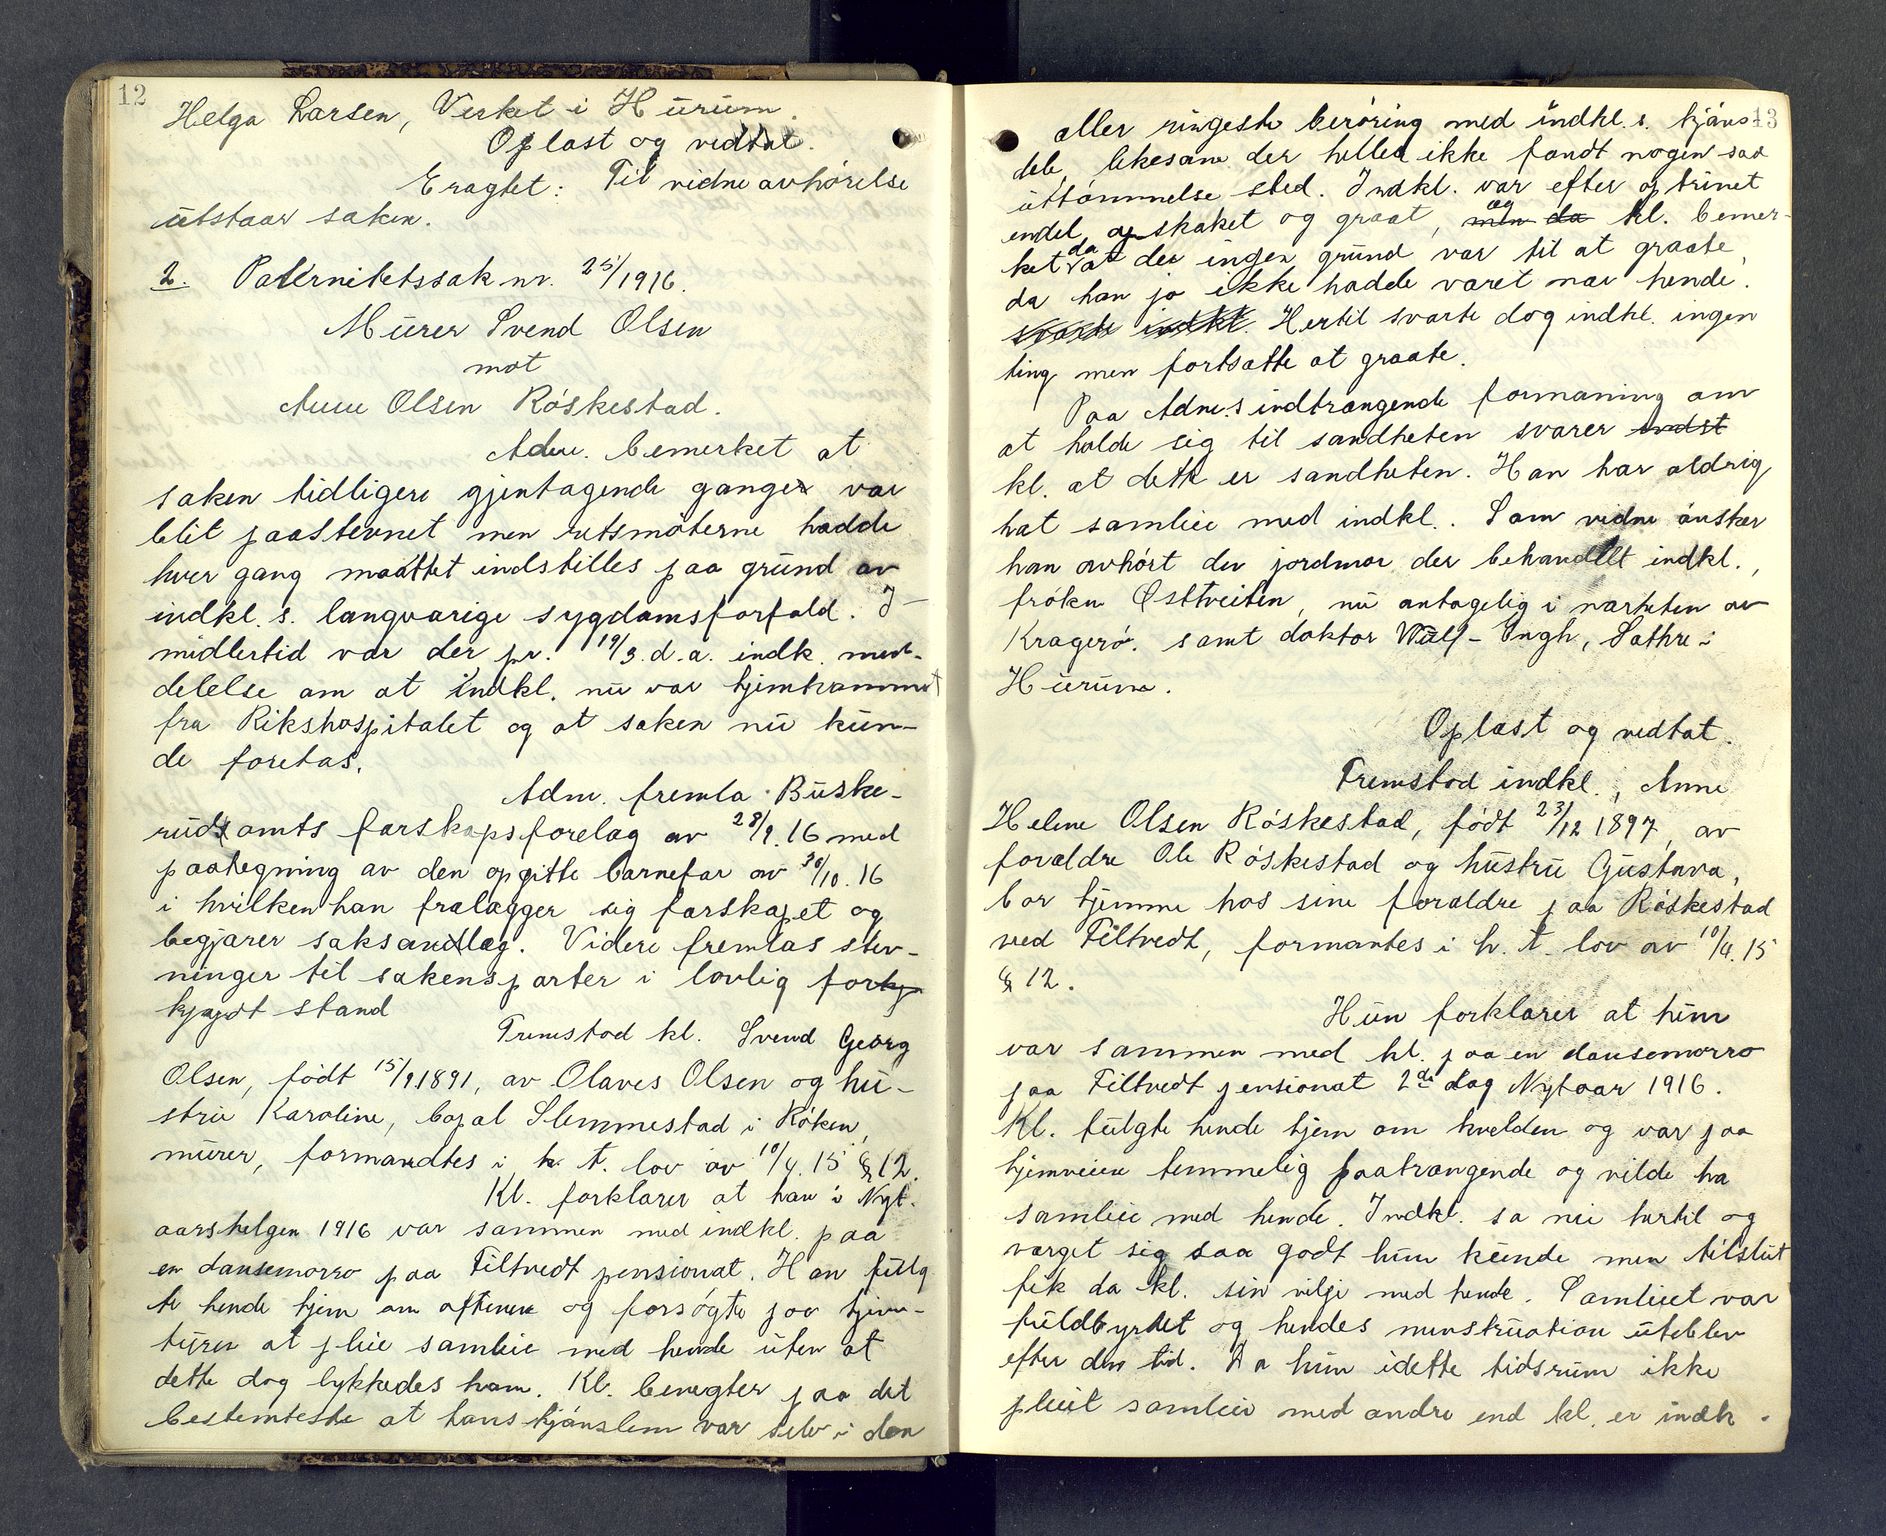 12
Helga Larsen, Verket i Hurum.
Oplæst og vedtat.
Eragtet: Til vidneavhörelse
utstaar saken.
2. Paternitetssak nr. 25/1916.
Murer Svend Olsen
mot
Anne Olsen Röskestad.
Adm. bemerket at
saken tidligere gjentagende ganger var
blit paastevnet men retsmöterne hadde
hver gang maattet indstilles paa grund av
indkl.s. langvarige sygdomsforfald. I-
midlertid var der pr. 19/3 d.a. indk. med-
delelse om at indkl. nu var hjemkommet
fra Rikshospitalet og at saken nu kun-
de foretas.
Adm. fremla Buske-
ruds amts farskapsforelæg av 28/9.16 med
paategning av den opgitte barnefar av 30/10.16
i hvilken han fralægger sig farskapet og
begjærer saksanlæg. Videre fremlas stev-
ninger til sakens parter i lovlig forkyn
kyndt stand
Fremstod kl. Svend Georg
Olsen, födt 15/9 1891, av Olaves Olsen og hu-
stru Karoline, bopæl Slemmestad i Röken,
murer, formandtes i h. t. lov av 10/4. 15 § 12.
Kl. forklarer at han i Nyt-
aarshelgen 1916 var sammen med indkl. paa
en dansemorro paa Filtvedt pensionat. Han fulg
te hende hjem om aftenen og forsögte paa hjem-
turen at pleie samleie med hende uten at
dette dog lykkedes ham. Kl. benegter paa det
bestemteste at hans kjönslem var selv i den
13
aller ringeste beröring med indkl.s. kjöns
dele, likesom der heller ikke fandt nogen sæd
uttömmelse sted. Indkl. var efter optrinet
endel opskaket og graat, men da og kl. bemer-
ket da at der ingen grund var til at graate,
da han jo ikke hadde været nær hende.
svarte indkl. Hertil svarte dog indkl. ingen
ting men fortsatte at graate.
Paa Adm.s indtrængende formaning om
at holde sig til sandheten svarer indst
kl. at dette er sandheten. Han har aldrig
hat samleie med indkl.. Som vidne önsker
han avhört den jordmor der behandlet indkl.,
fröken Østtveiten, nu antagelig i nærheten av
Kragerö. samt doktor Wulf-Engh, Sætre i
Hurum.
Oplæst og vedtat.
Fremstod indkl., Anne
Helene Olsen Röskestad, födt 23/12 1897, av
forældre Ole Röskestad og hustru Gustava,
bor hjemme hos sine forældre paa Röskestad
ved Filtvedt, formantes i h. t. lov av 10/4. 15
§ 12.
Hun forklarer at hun
var sammen med kl. paa en dansemorro
paa Filtvedt pensionat 2den dag Nytaar 1916.
Kl. fulgte hende hjem om kvelden og var paa
hjemveien temmelig paatrængende og vilde ha
samleie med hende. Indkl. sa nei hertil og
værget sig saa godt hun kunde men tilslut
fik da kl. sin vilje med hende. Samleiet var
fuldbyrdet og hendes menstruation uteblev
efter den tid. Da hun idette tidsrum ikke
pleiet samleie med andre end kl. er indk